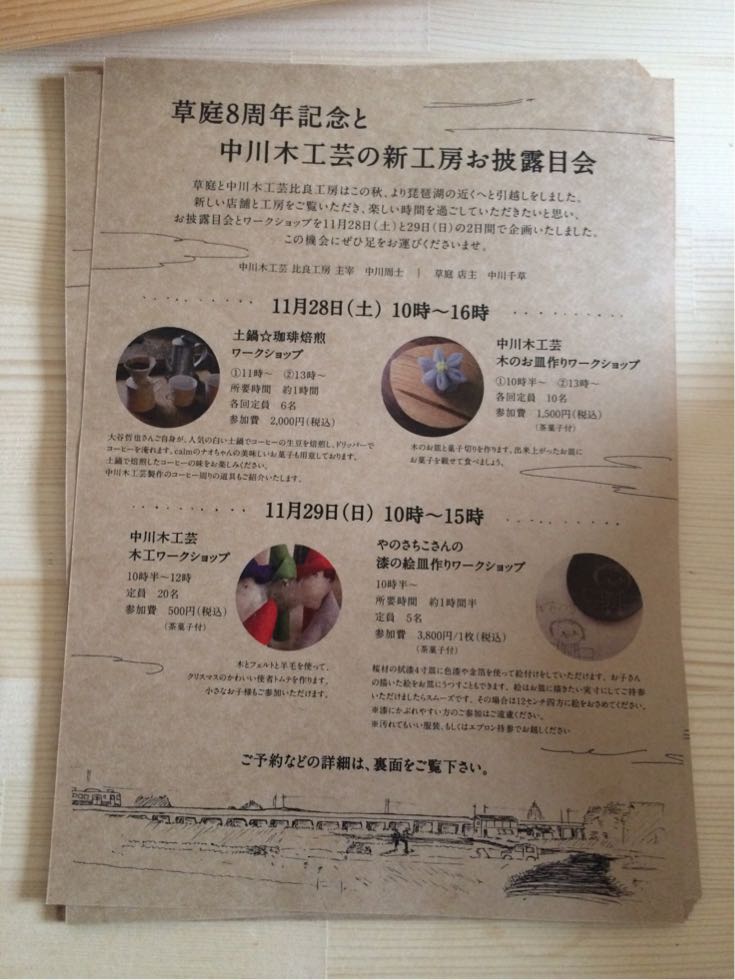 草庭8周年記念と
中川木工芸の新工房お披露目会
草庭と中川木工芸比良工房はこの秋、より琵琶湖の近くへと引越しをしました。
新しい店舗と工房をご覧いただき、楽しい時間を過ごしていただきたいと思い、
お披露目会とワークショップを11月28日(土)と29日(日)の2日間で企画いたしました。
この機会にぜひ足をお運びくださいませ。
中川木工芸 比良工房 主宰 中川周士 | 草庭 店主 中川千草
11月28日(土) 10時〜16時
土鍋☆珈琲焙煎
ワークショップ
①11時〜 ②13時〜
所要時間 約1時間
各回定員 6名
参加費 2,000円(税込)
大谷哲也さんご自身が、人気の白い土鍋でコーヒーの生豆を焙煎し、ドリッパーで
コーヒーを淹れます。calmのナオちゃんの美味しいお菓子も用意しております。
土鍋で焙煎したコーヒーの味をお楽しみください。
中川木工芸製作のコーヒー周りの道具もご紹介いたします。
中川木工芸
木のお皿作りワークショップ
①10時半〜 ②13時〜
各回定員 10名
参加費 1,500円(税込)
(茶菓子付)
木のお皿と菓子切りを作ります。出来上がったお皿に
お菓子を載せて食べましょう。
11月29日(日) 10時〜15時
中川木工芸
木工ワークショップ
10時半〜12時
定員 20名
参加費 500円(税込)
(茶菓子付)
木とフェルトと羊毛を使って、
クリスマスのかわいい使者トムテを作ります。
小さなお子様もご参加いただけます。
やのさちこさんの
漆の絵皿作りワークショップ
10時半〜
所要時間 約1時間半
定員 5名
参加費 3,800円/1枚(税込)
(茶菓子付)
桜材の拭漆4寸皿に色漆や金箔を使って絵付けをしていただけます。お子さん
の描いた絵をお皿にうつすこともできます。絵はお皿に描きたい実寸にしてご持参
いただけましたらスムーズです。その場合は12センチ四方に絵をおさめてください。
※漆にかぶれやすい方のご参加はご遠慮ください。
※汚れてもいい服装、もしくはエプロン持参でお越しください
ご予約などの詳細は、裏面をご覧下さい。